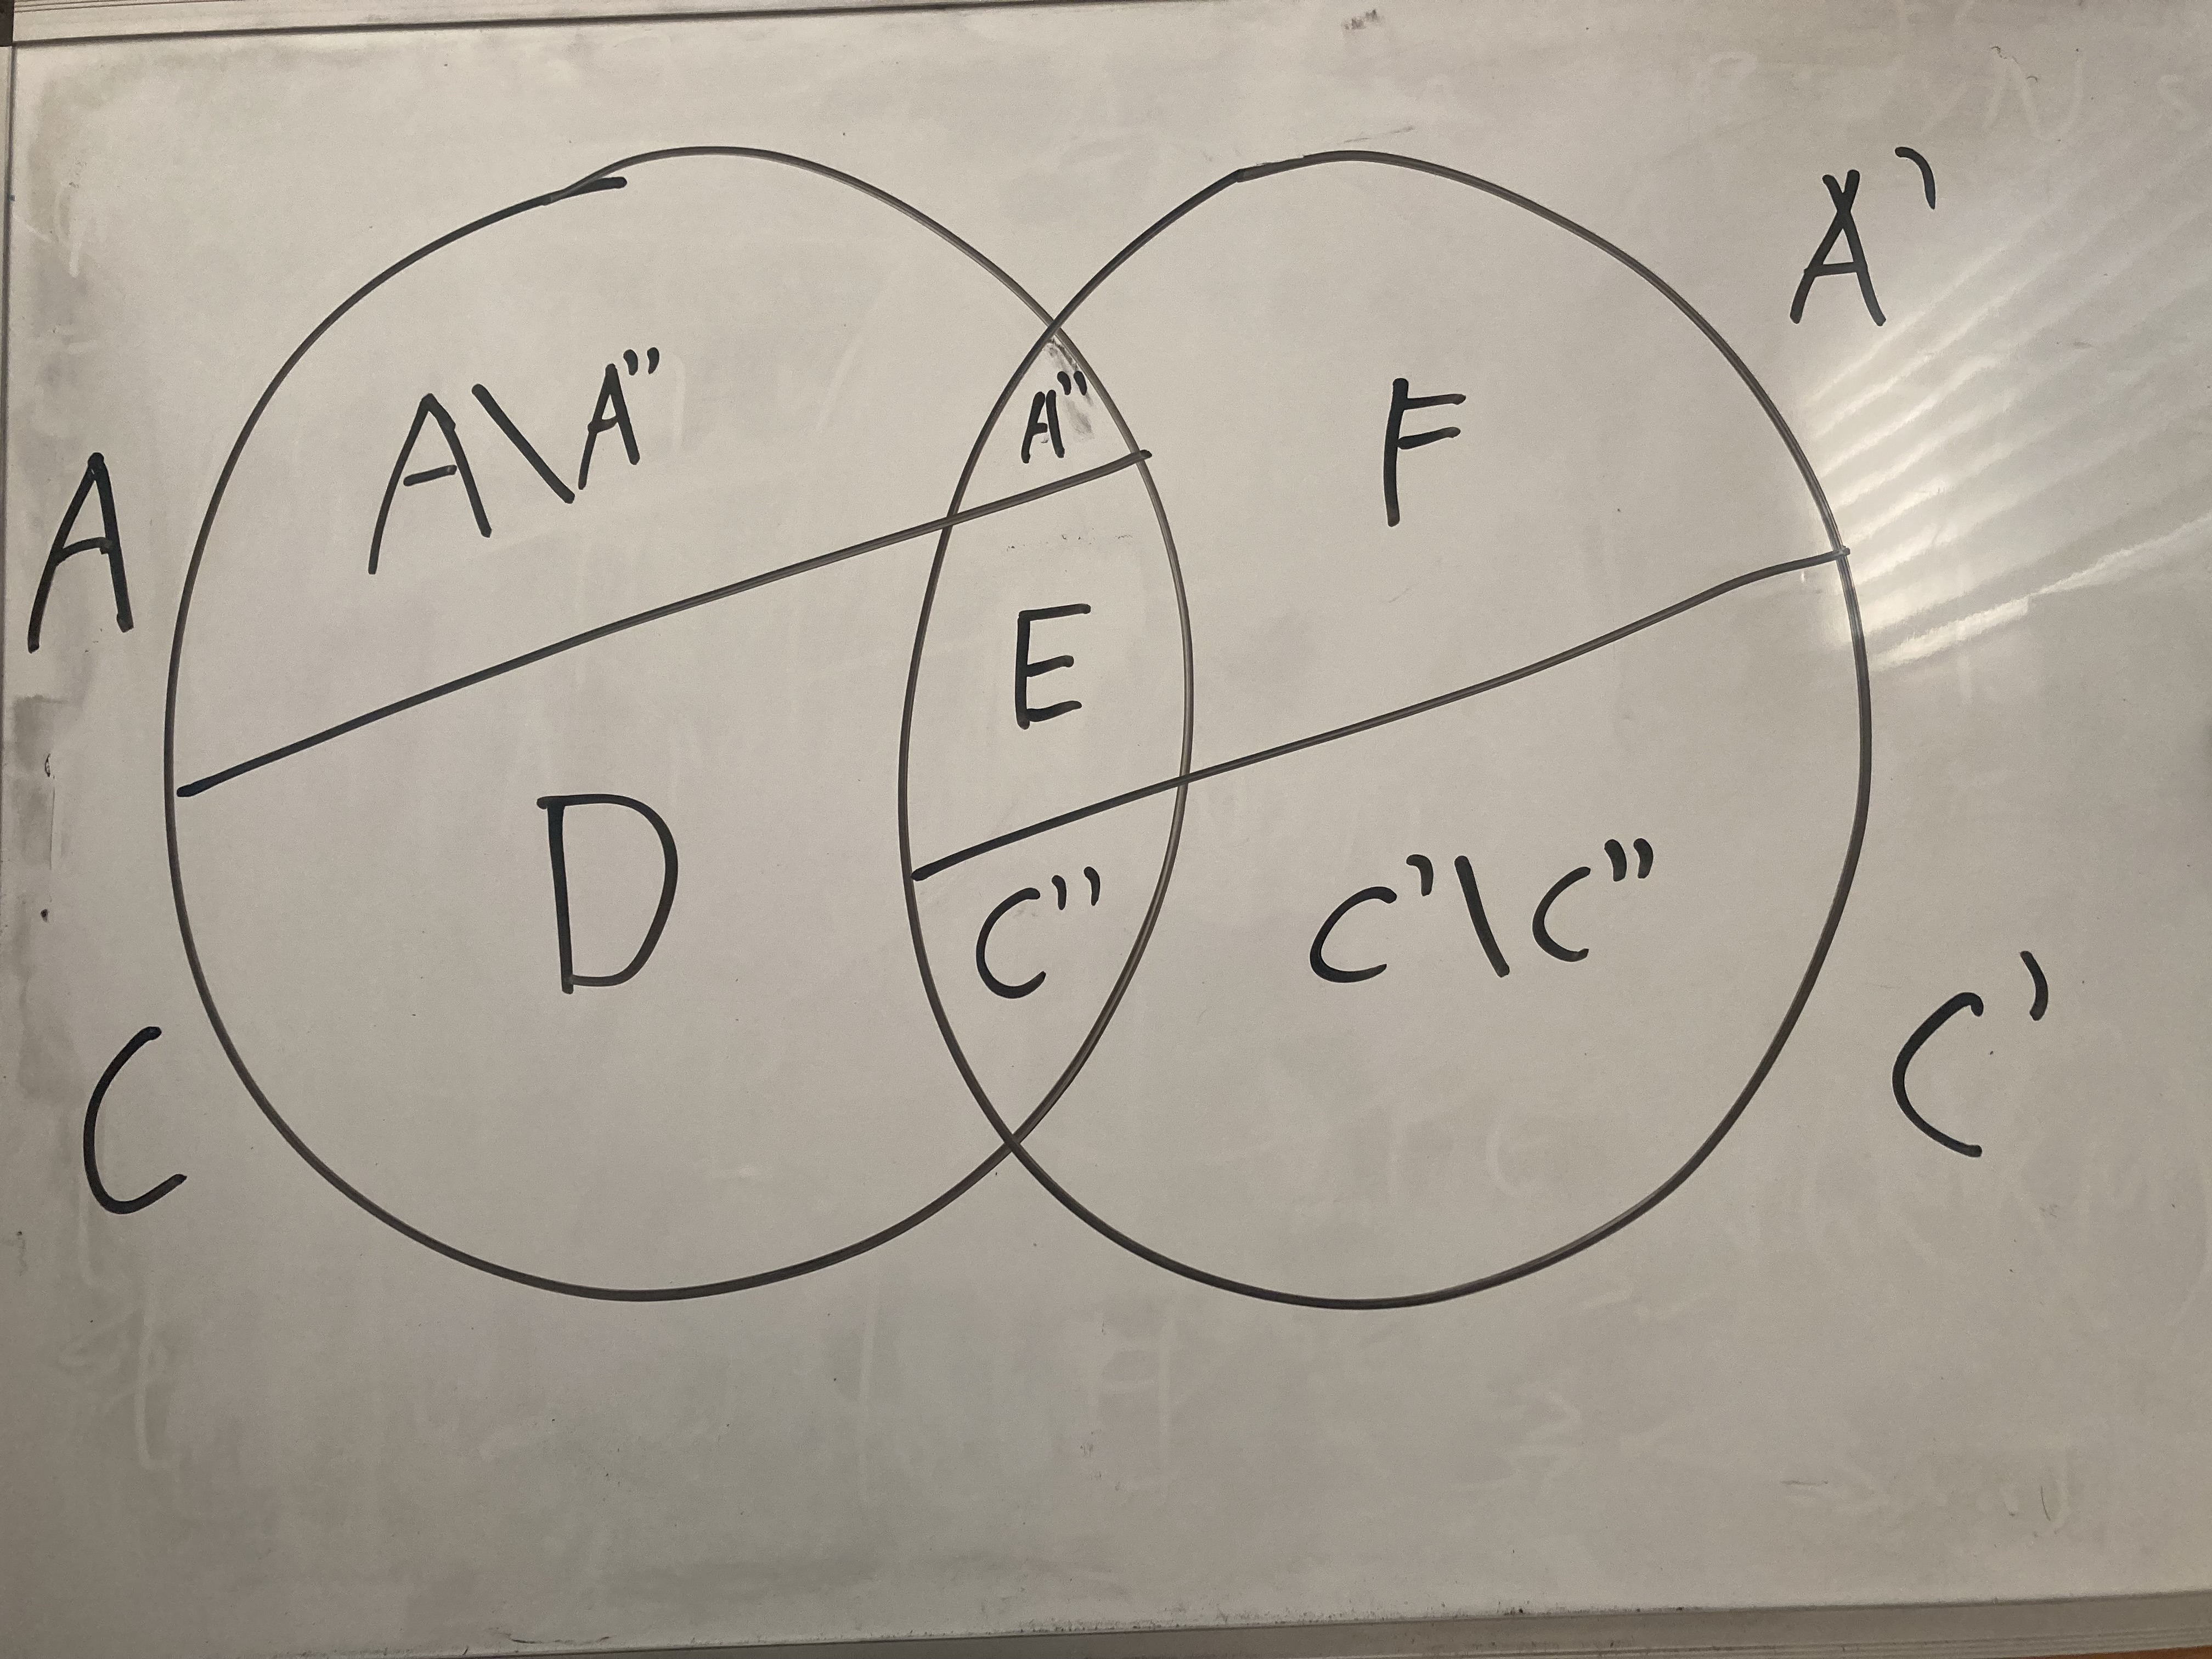 A'
A\A"
A"
F
A
E
D
C"
C'\C"
C
C'